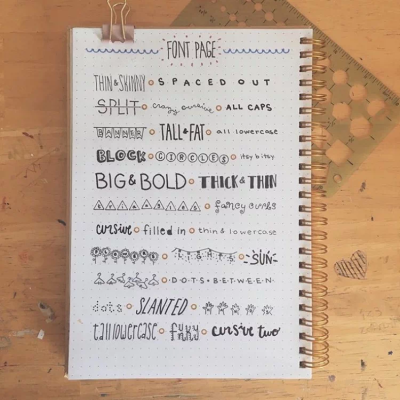 FONT PAGE
THIN & SKINNY SPACED OUT
SPLIT crazy cursive ALL CAPS
BANNER TALL & FAT all lowercase
BLOCK CIRCLES itsy bitsy
BIG & BOLD THICK & THIN
fancy curls
cursive filled in thin & lowercase
SUN
DOTS BETWEEN
dots SLANTED
tall lowercase funky cursive two